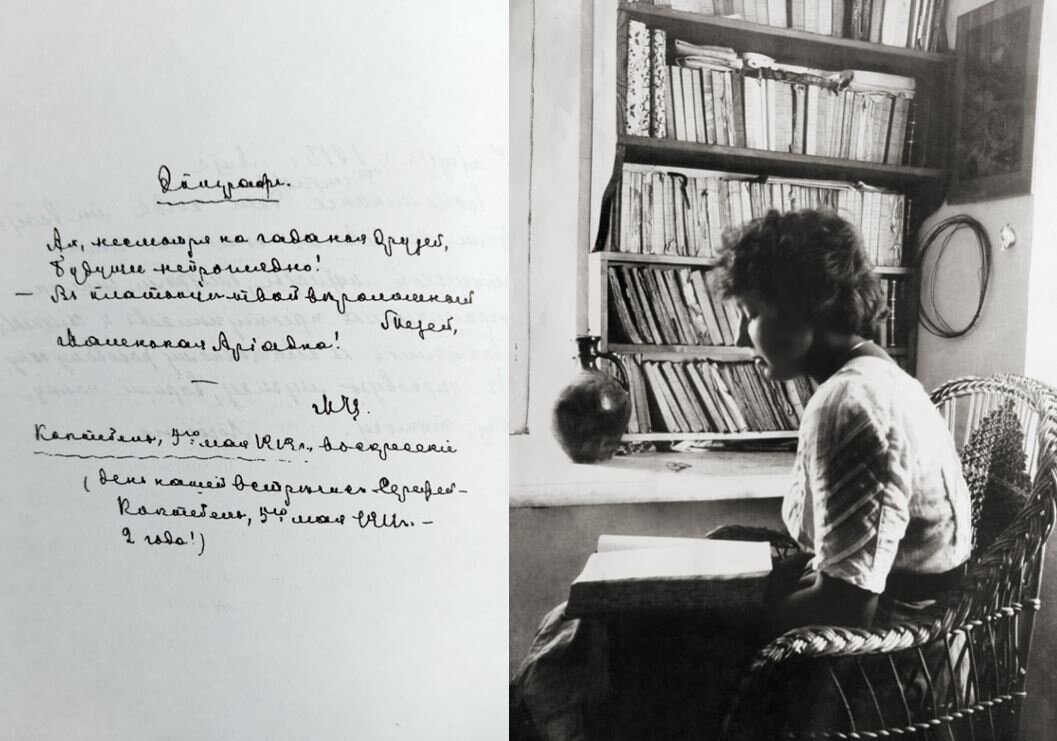 Эпиграфъ.
Ах, несмотря на гаданья друзей,
Будущее непроглядно!
— Въ платьицѣ твой вѣроломный
Тезей,
Маленькая Аріадна!
МЦ.
Коктебель, 5го мая 1913г., воскресенье
(день нашей встрѣчи съ Сережей —
Коктебель, 5го мая 1911г. —
2 года!)